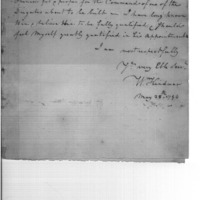 for the Command of one of the
Frigates about to be built — I have long known
him, & believe him to be fully qualified, & should
feel myself greatly gratified in his appointment
I am most respectfully
Yr. very Obt Servt
W.
May 28th 179